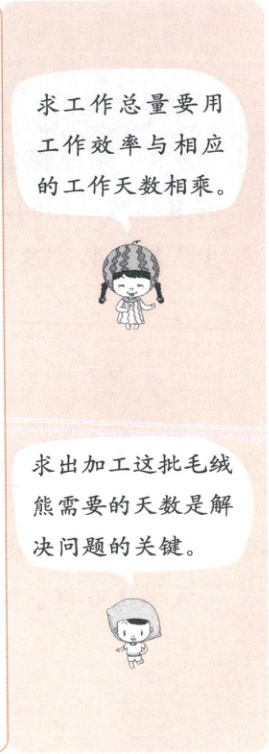 求工作总量要用
工作效率与相应
的工作天数相乘。
求出加工这批毛绒
熊需要的天数是解
决问题的关键。